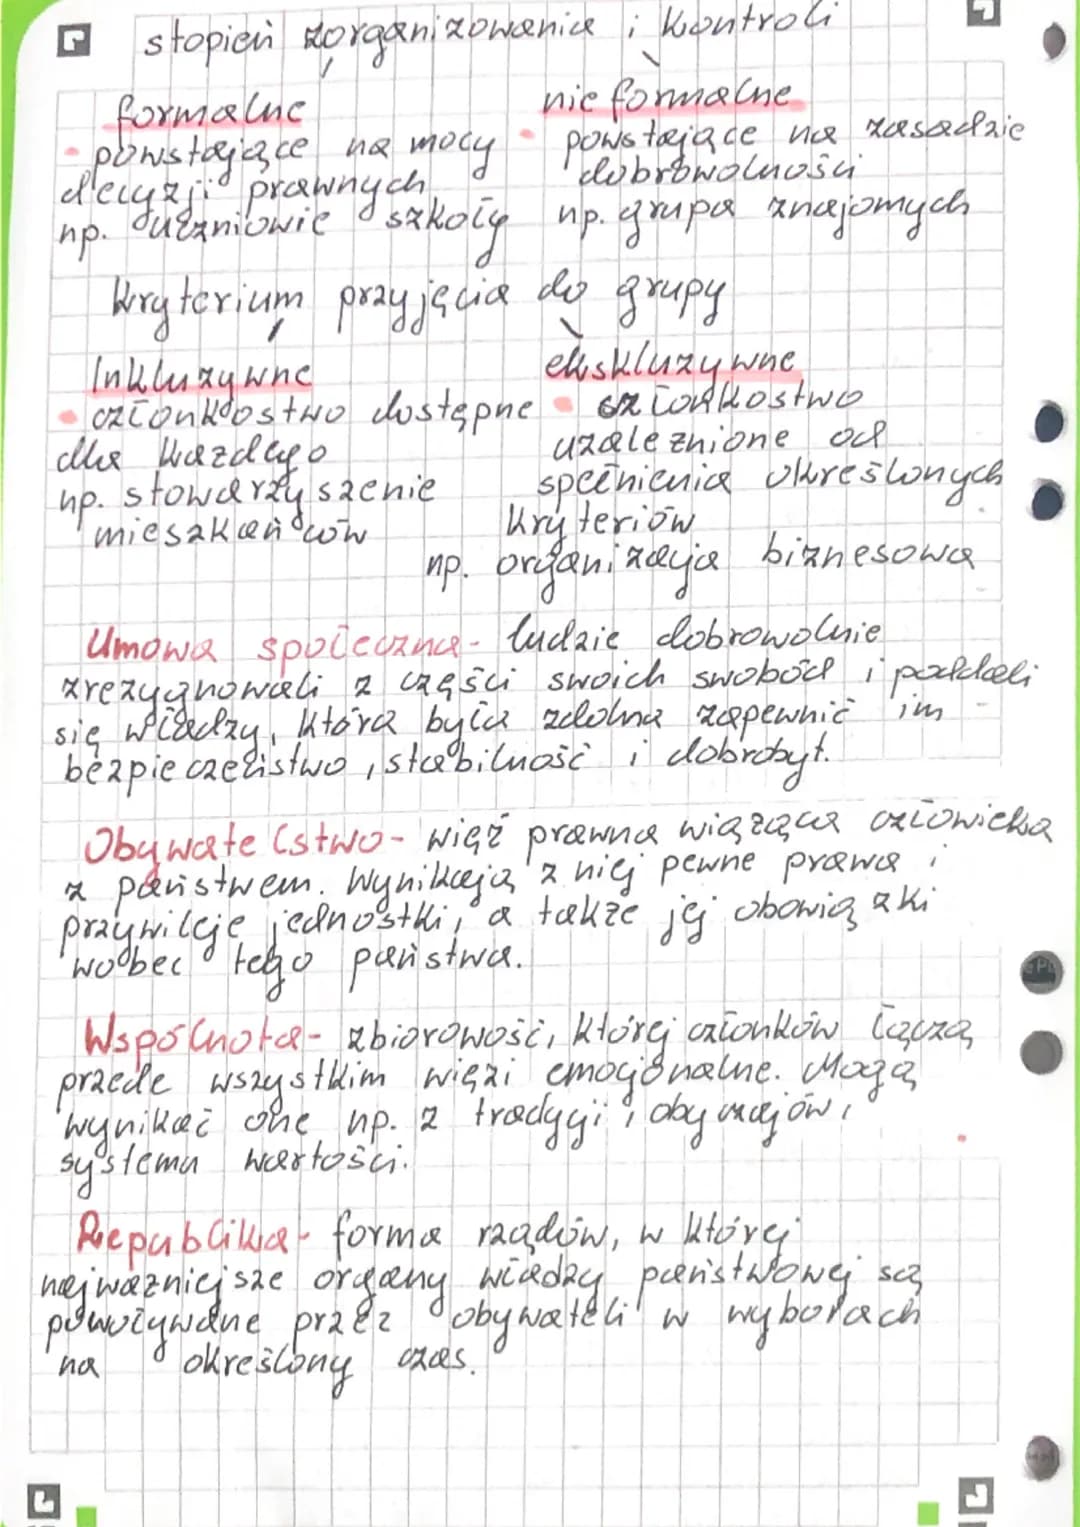 stopień zorganizowania i kontroli
formalne
• powstające na mocy
decyzji prawnych
np. uczniowie szkoły
nieformalne
• powstające na zasadzie
dobrowolności
np. grupa znajomych
kryterium przyjęcia do grupy
Inkluzywne
• członkostwo dostępne
dla każdego
np. stowarzyszenie
mieszkańców
ekskluzywne
• członkostwo
uzależnione od
spełnienia określonych
kryteriów
np. organizacja biznesowa
Umowa społeczna - ludzie dobrowolnie
zrezygnowali z części swoich swobód i poddali
się władzy, która była zdolna zapewnić im -
bezpieczeństwo, stabilność i dobrobyt.
Obywatelstwo - więź prawna wiążąca człowieka
z państwem. Wynikają z niej pewne prawa i
przywileje jednostki, a także jej obowiązki
wobec tego państwa.
Wspólnota - zbiorowość, której członków łączą
przede wszystkim więzi emocjonalne. Mogą
wynikać one np. z tradycji, obyczajów,
systemu wartości.
Republika - forma rządów, w której
najważniejsze organy władzy państwowej są
powoływane przez obywateli w wyborach
na określony czas.